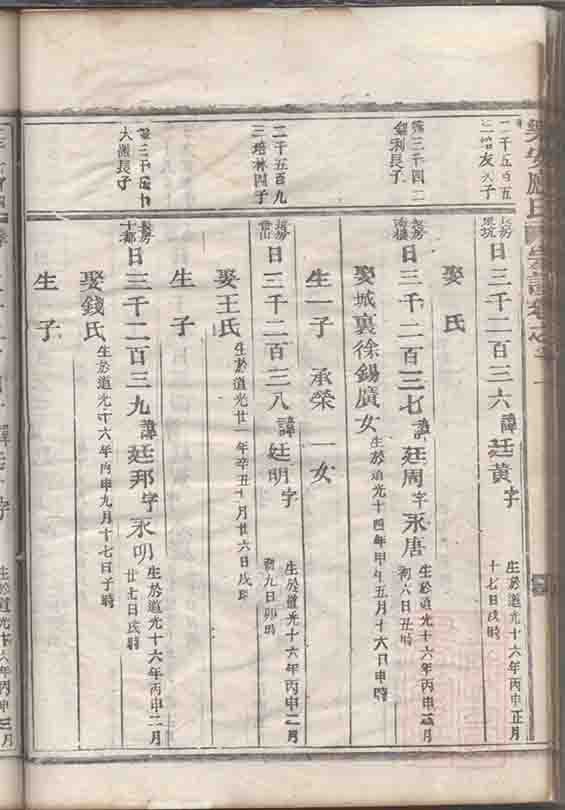 樂安盧氏
二千五百五
友人子
長房
日三千二百三六 諱廷黃 字
生於道光十六年丙申正月
十七日戌時
娶 氏
三千四二
長子
長房
日三千二百三七 諱廷周 字永唐
生於道光十六年丙申
初八日丑時
娶城裏徐錫廣女 生於道光十四年甲午五月十六日申時
生一子 承榮 一女
二千五百九
三培林四子
長房
日三千二百三八 諱廷明 字
生於道光十六年丙申二月
初九日卯時
娶王氏 生於道光廿一年辛丑十月廿六日戌時
生 子
大潮長子
長房
十都
日三千二百三九 諱廷邦 字永明
生於道光十六年丙申二月
廿七日戌時
娶錢氏 生於道光十六年丙申九月十七日子時
生 子
生於道光十六年丙申三月